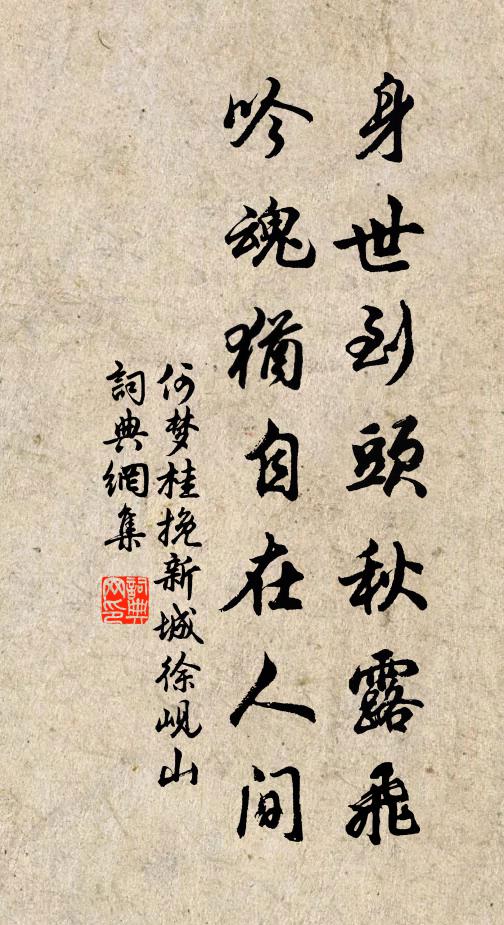 身世到頭秋露飛
吟魂猶自在人間
何梦桂挽新城徐岘山
詞典網集
詞典网印